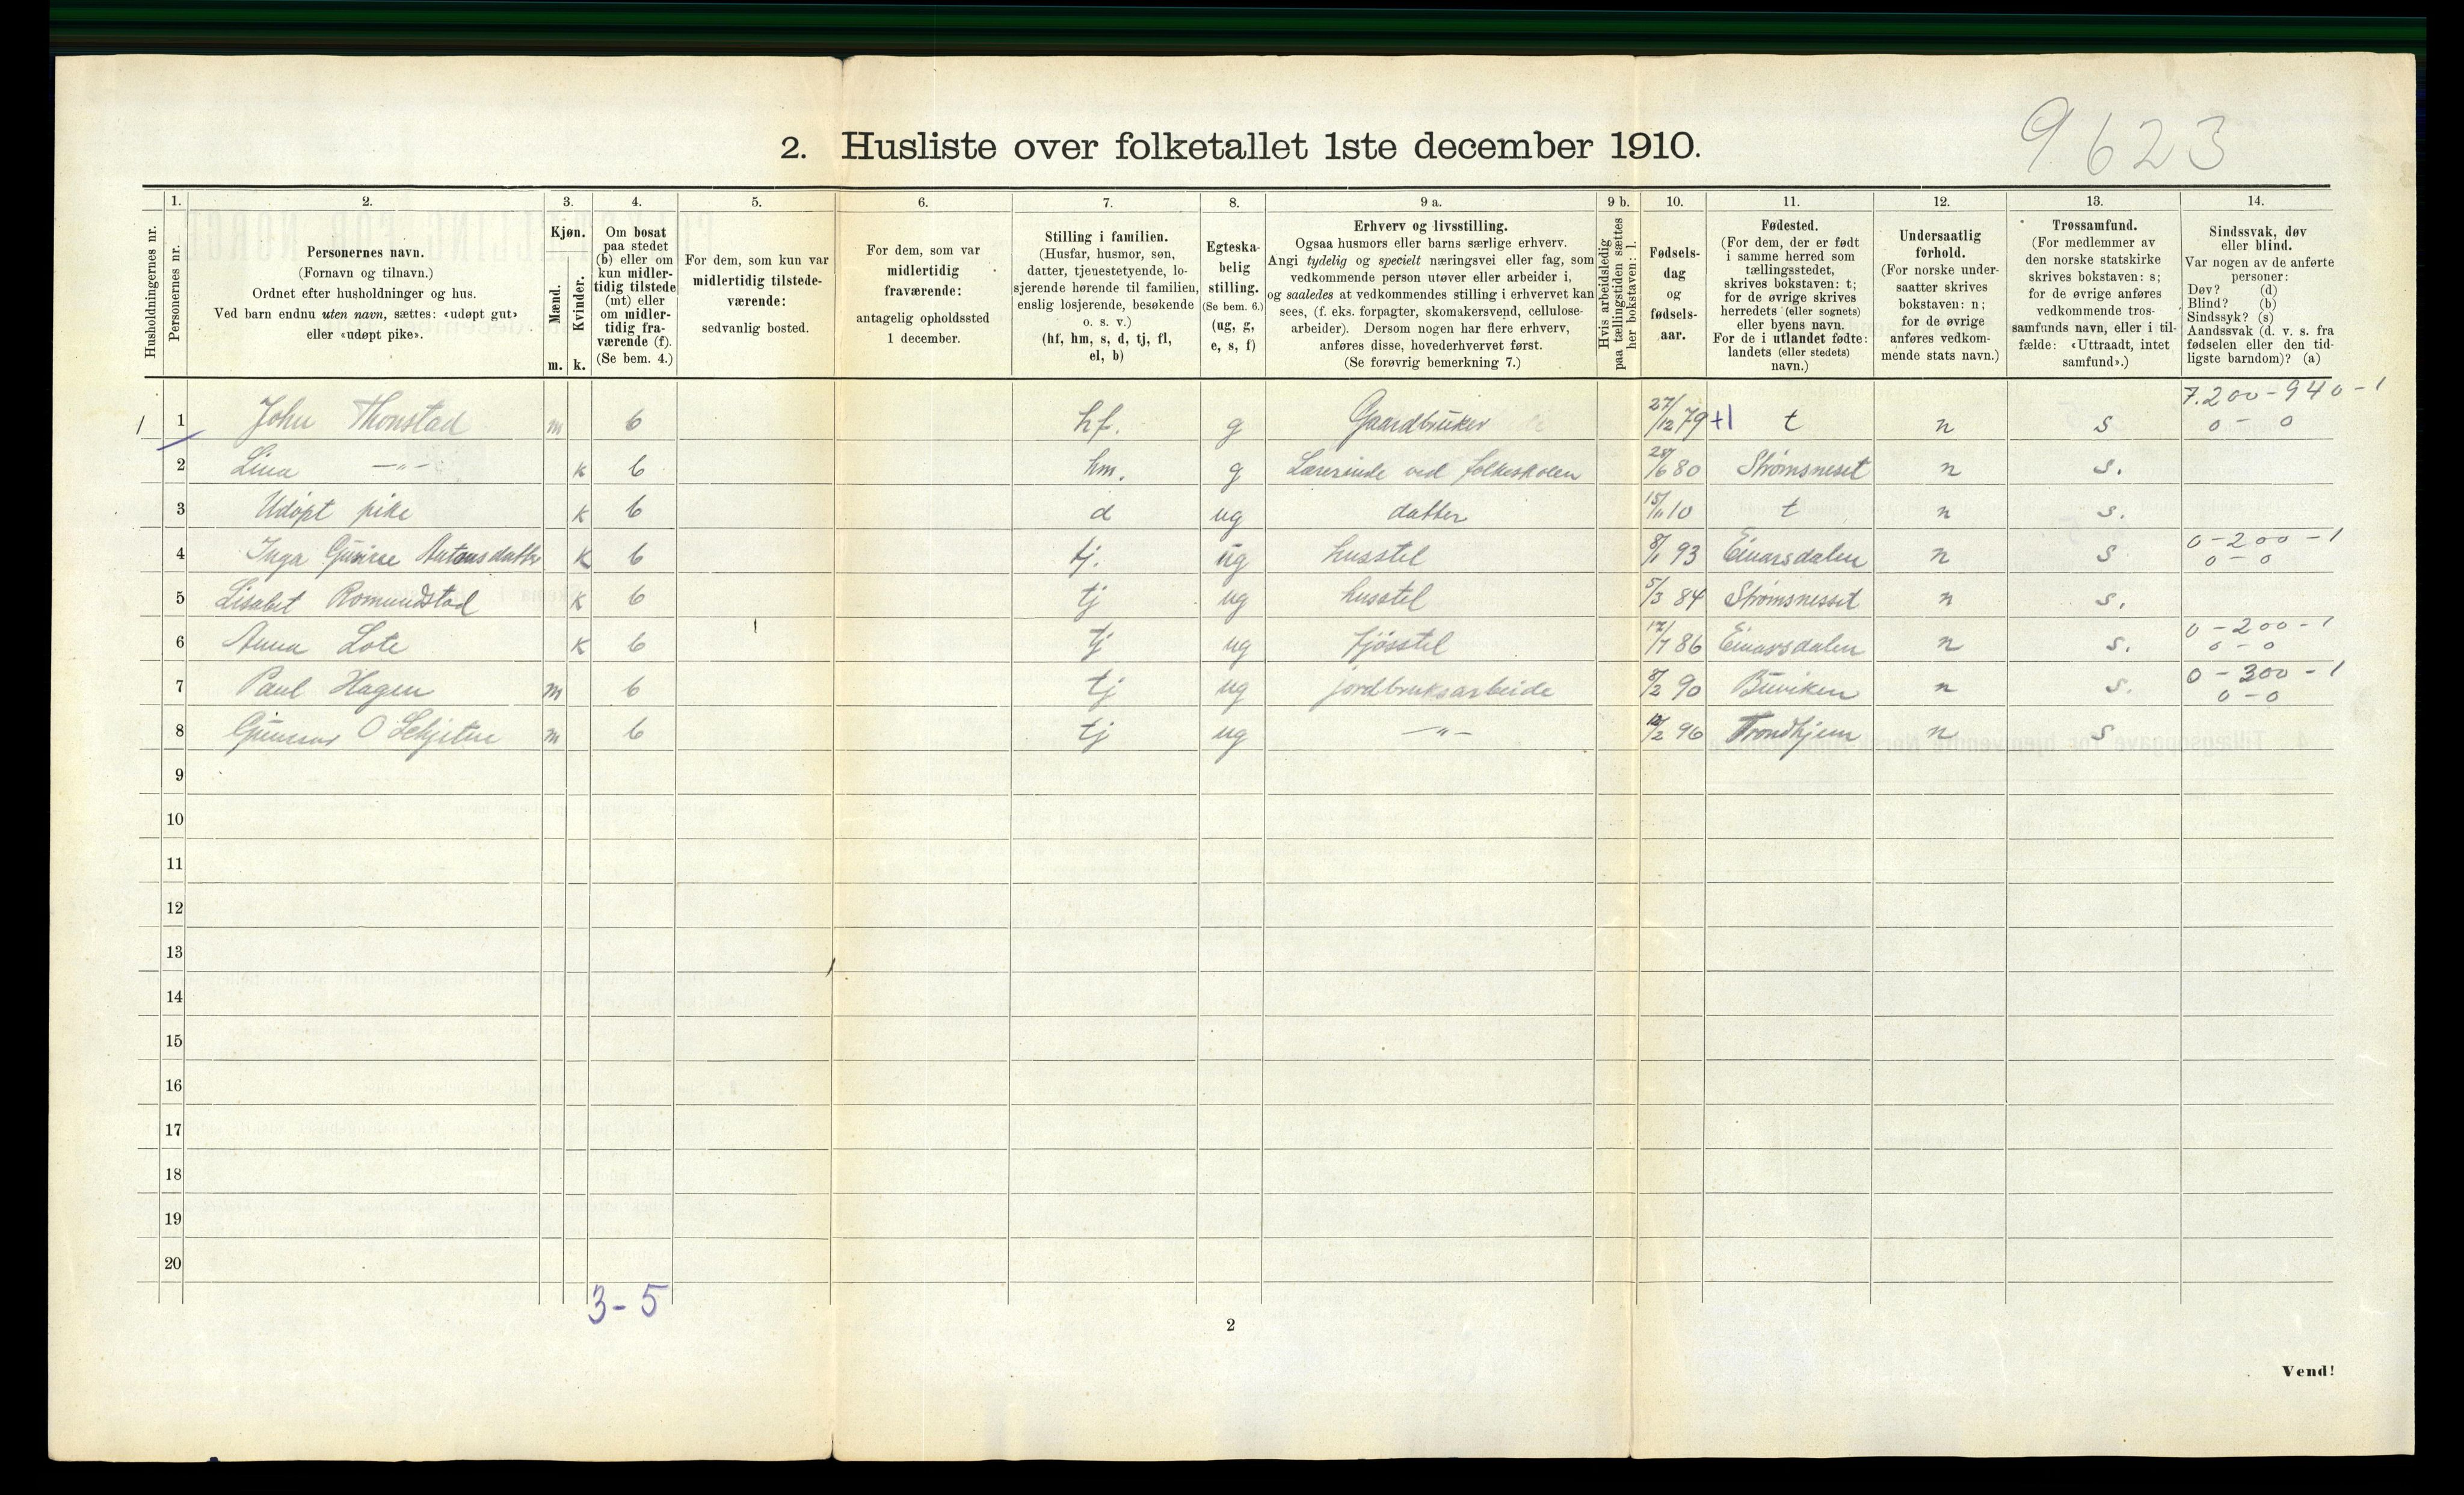 9623
2. Husliste over folketallet 1ste december 1910.
Husholdningernes nr.
1.
Personernes nr.
2.
Personernes navn.
(Fornavn og tilnavn.)
Ordnet efter husholdninger og hus.
Ved barn endnu uten navn, sættes: «udøpt gut»
eller «udøpt pike».
3.
Kjøn.
Mænd.
Kvinder.
m. k.
4.
Om bosat
paa stedet
(b) eller om
kun midler-
tidig tilstede
(mt) eller
om midler-
tidig fra-
værende (f).
(Se bem. 4.)
5.
For dem, som kun var
midlertidig tilstede-
værende:
sedvanlig bosted.
6.
For dem, som var
midlertidig
fraværende:
antagelig opholdssted
1 december.
7.
Stilling i familien.
(Husfar, husmor, søn,
datter, tjenestetyende, lo-
sjerende hørende til familien,
enslig losjerende, besøkende
o. s. v.)
(hf, hm, s, d, tj, fl,
el, b)
8.
Egteska-
belig
stilling.
(Se bem. 6.)
(ug, g,
e, s, f)
9 a.
Erhverv og livsstilling.
Ogsaa husmors eller barns særlige erhverv.
Angi tydelig og specielt næringsvei eller fag, som
vedkommende person utøver eller arbeider i,
og saaledes at vedkommendes stilling i erhvervet kan
sees, (f. eks. forpagter, skomakersvend, cellulose-
arbeider). Dersom nogen har flere erhverv,
anføres disse, hovederhvervet først.
(Se forøvrig bemerkning 7.)
9 b.
Hvis arbeidsledig
paa tællingstiden sættes
her bokstaven: l.
10.
Fødsels-
dag
og
fødsels-
aar.
11.
Fødested.
(For dem, der er født
i samme herred som
tællingsstedet,
skrives bokstaven: t;
for de øvrige skrives
herredets (eller sognets)
eller byens navn.
For de i utlandet fødte:
landets (eller stedets)
navn.)
12.
Undersaatlig
forhold.
(For norske under-
saatter skrives
bokstaven: n;
for de øvrige
anføres vedkom-
mende stats navn.)
13.
Trossamfund.
(For medlemmer av
den norske statskirke
skrives bokstaven: s;
for de øvrige anføres
vedkommende tros-
samfunds navn, eller i til-
fælde: «Uttraadt, intet
samfund».)
14.
Sindssvak, døv
eller blind.
Var nogen av de anførte
personer:
Døv? (d)
Blind? (b)
Sindssyk? (s)
Aandssvak (d. v. s. fra
fødselen eller den tid-
ligste barndom)? (a)
7.200-940-1
1 1 John Thonstad m b hf. g Gaardbruker 27/12 79 +1 t n s 0-0
2 Lina —"— k b hm. g Lærerinde ved folkeskolen 28/6 80 Strømsneset n s.
3 Udøpt pike k b d ug datter 15/11 10 t n s.
4 Inga Antonsdatter k b tj. ug husstel 8/1 93 Einarsdalen n s 0-200-1 0-0
5 Lisabet Romundstad k b tj ug husstel 5/3 84 Strømsnesset n s.
6 Anna Lote k b tj ug fjøsstel 17/7 86 Einarsdalen n s. 0-200-1 0-0
7 Paul Hagen m b tj ug jordbruksarbeide 8/2 90 Buviken n s. 0-300-1 0-0
8 Gunnar O m b tj ug —"— 12/2 96 Trondhjem n s
9
10
11
12
13
14
15
16
17
18
19
20
3-5
2
Vend!